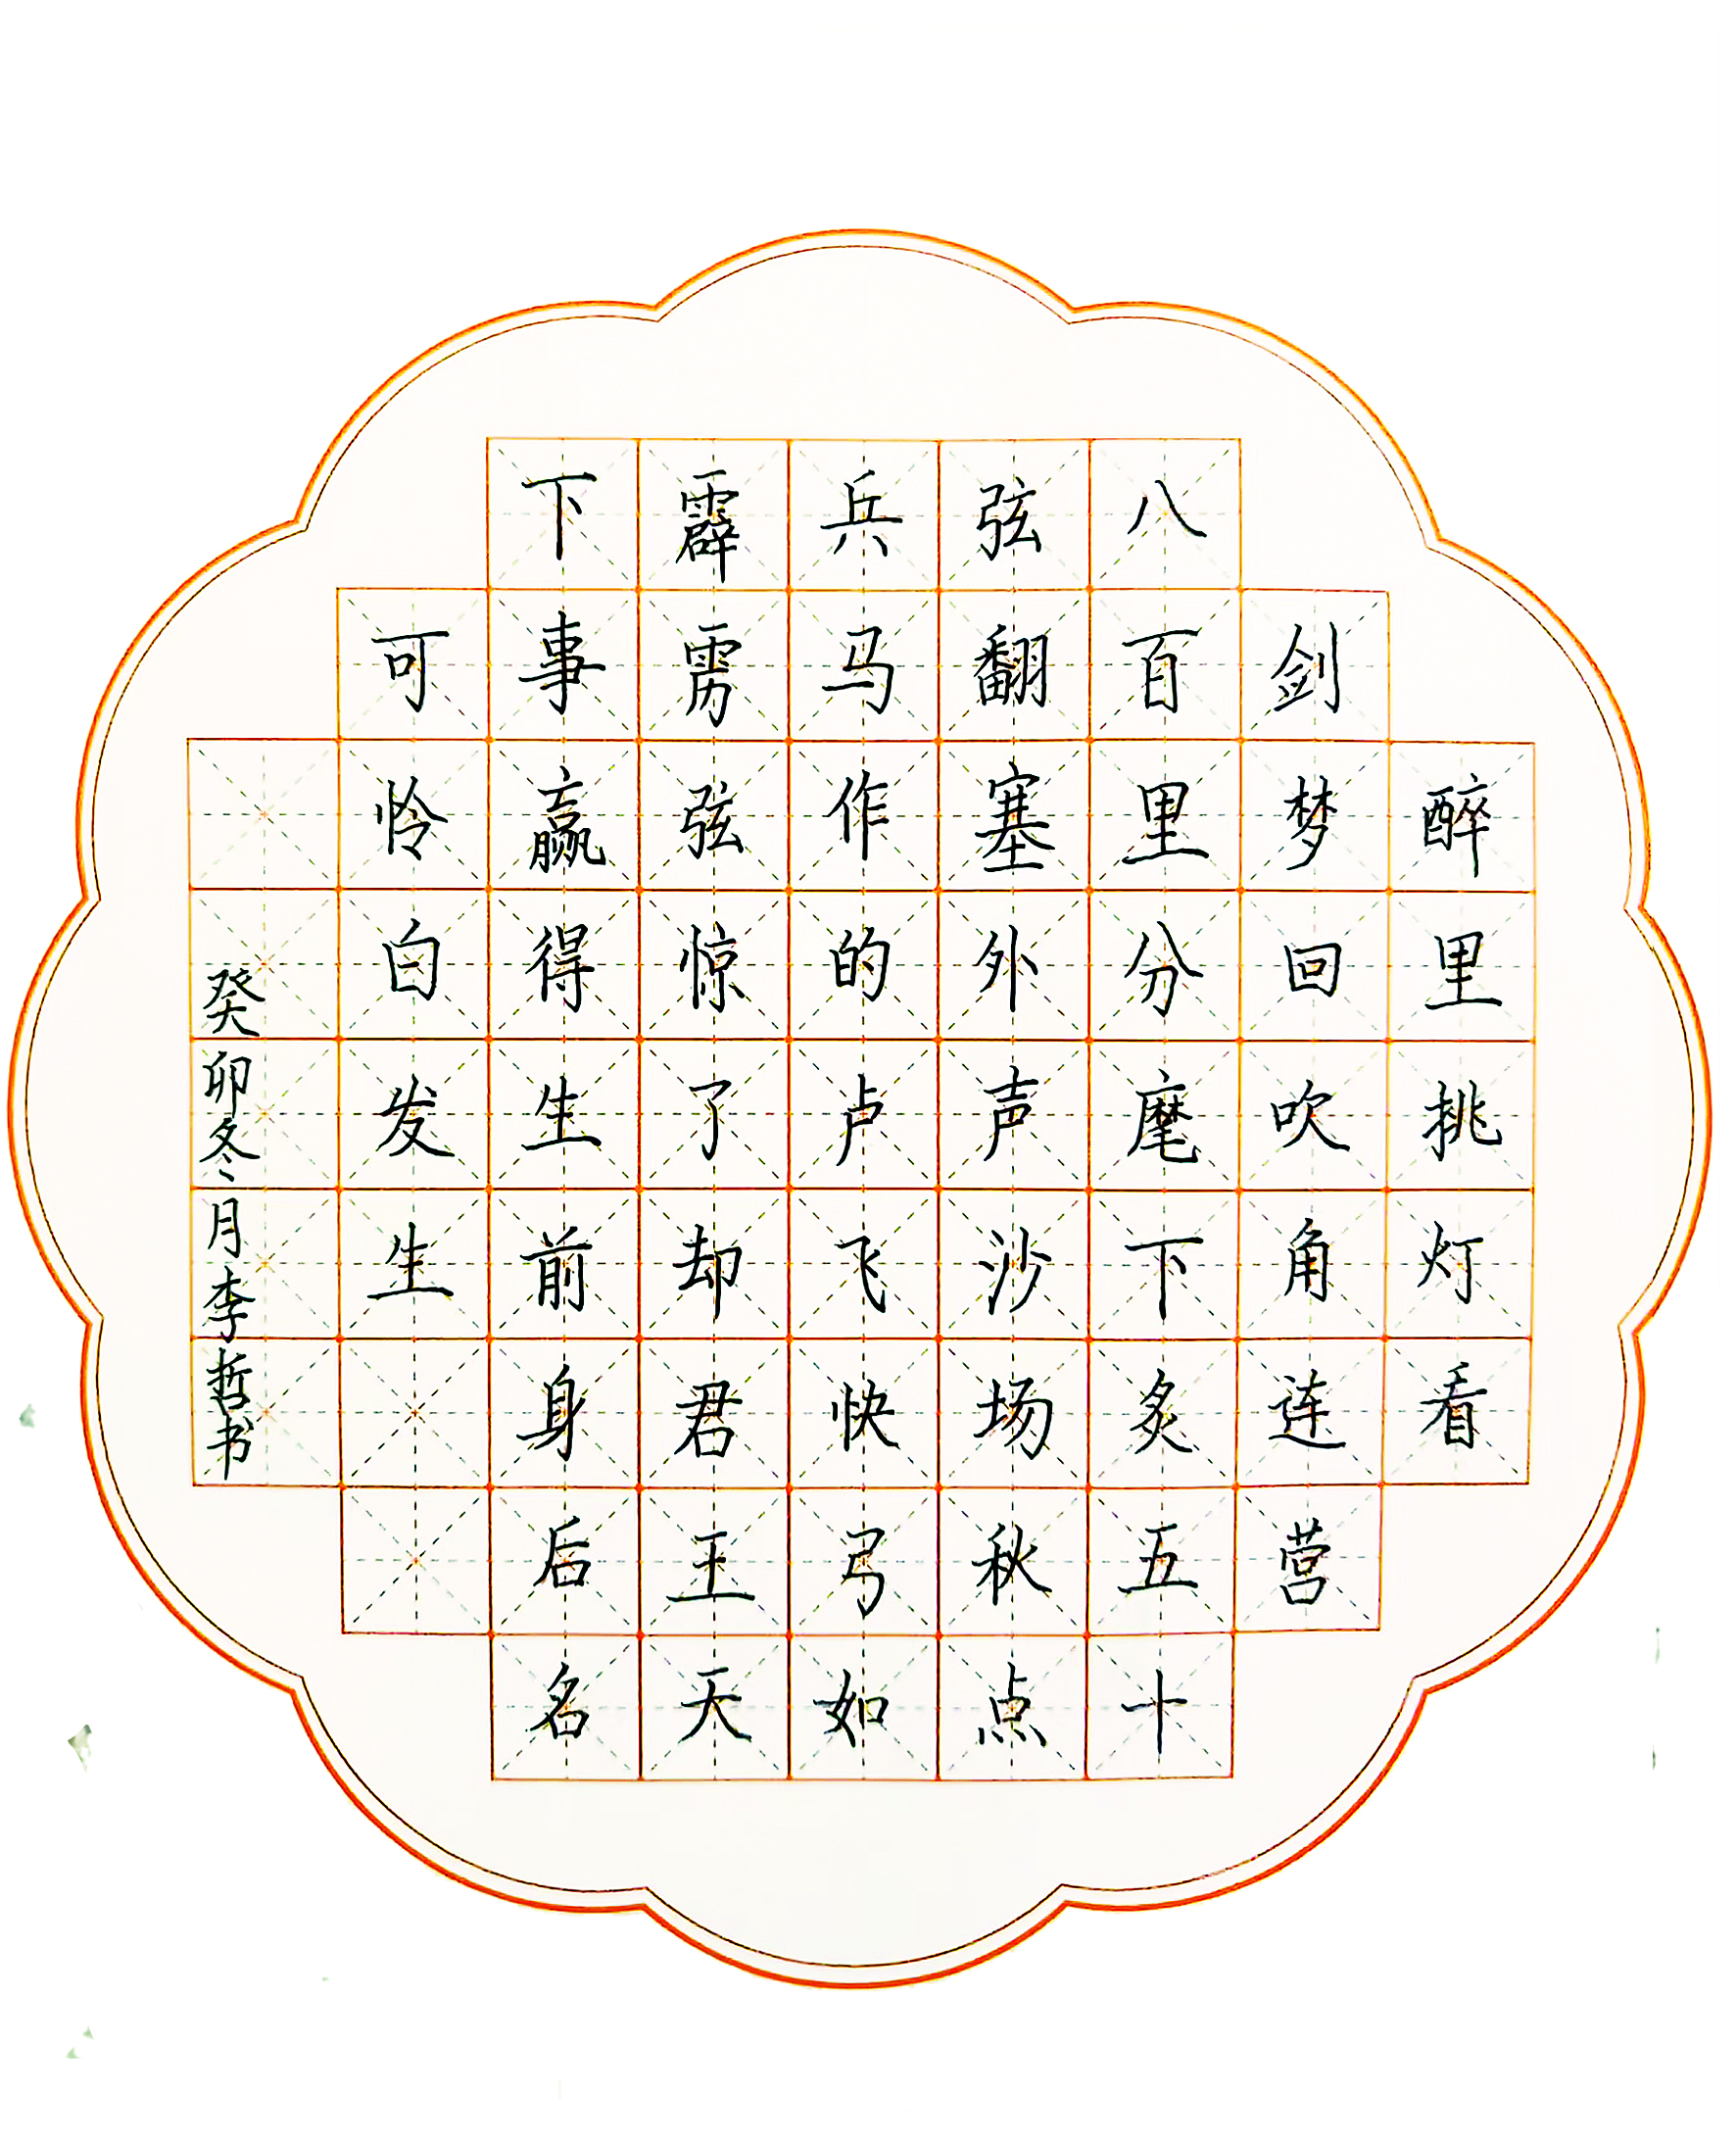 醉里挑灯看
剑梦回吹角连营
八百里分麾下炙五十
弦翻塞外声沙场秋点
兵马作的卢飞快弓如
霹雳弦惊了却君王天
下事赢得生前身后名
可怜白发生
癸卯冬月李哲书